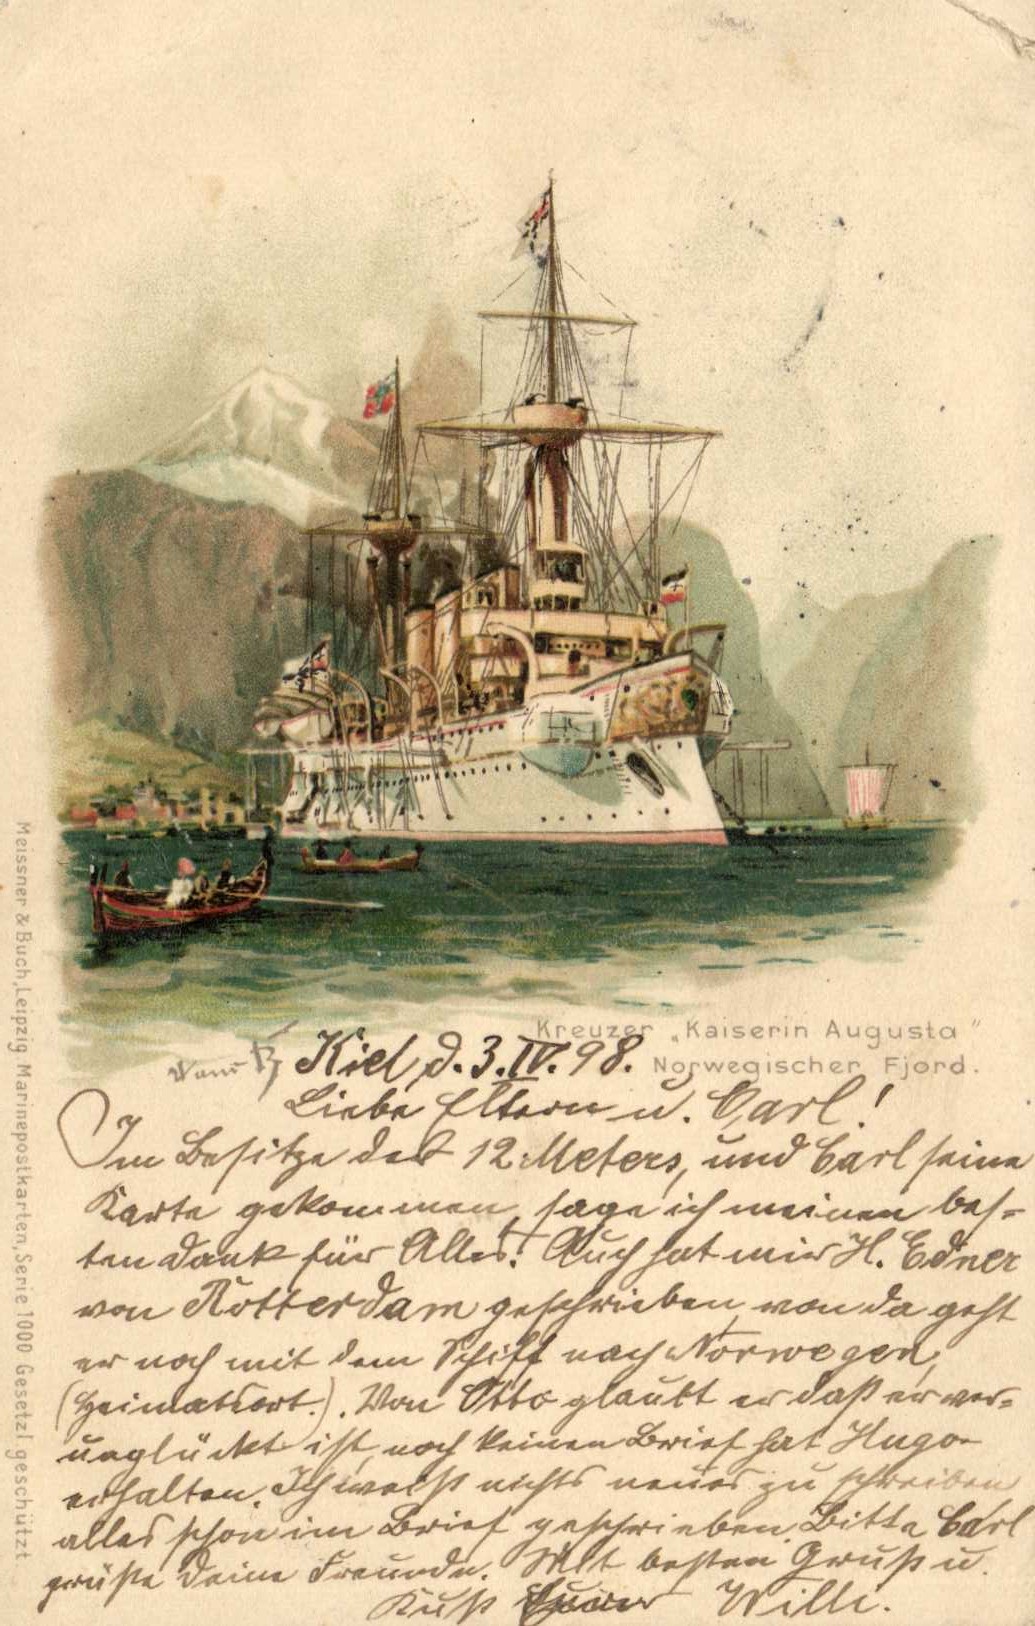 Kreuzer „Kaiserin Augusta"
Norwegischer Fjord.
Kiel, d. 3. IV. 98.
Liebe Eltern u. Carl!
Im Besitze des 12 Meters, und Carl seine
Karte gekommen, sage ich meinen bes-
ten Dank für Alles! Auch hat mir H. Edner
von Rotterdam geschrieben, von da geht
er noch mit dem Schiff nach Norwegen,
(Heimatsort.). Von Otto glaubt er daß er ver-
unglückt ist, noch keinen Brief hat Hugo
erhalten. Ich weiß nichts neues zu schreiben
alles schon im Brief geschrieben. Bitte Carl
grüße deine Freunde. Mit besten Gruß u.
Kuß Euer Willi.
Meissner & Buch, Leipzig Marinepostkarten, Serie 1000 Gesetzl geschützt